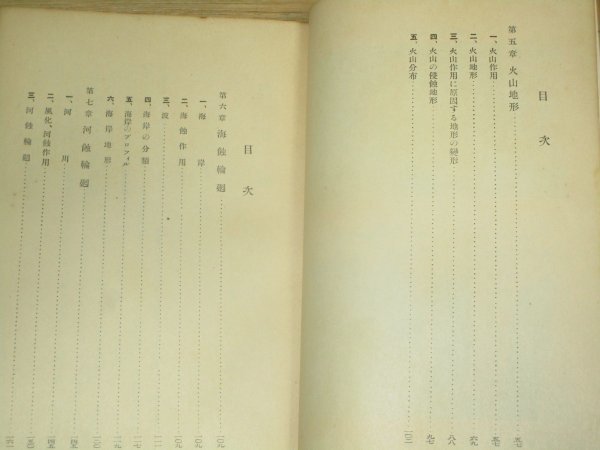 目次
第五章 火山地形
一、火山作用
二、火山地形
三、火山作用に原因する地形の變形
四、火山の侵蝕地形
五、火山分布
目次
第六章 海蝕輪廻
一、海岸
二、海蝕作用
三、波
四、海岸の分類
五、海岸のプロフィル
六、海岸地形
第七章 河蝕輪廻
一、河川
二、風化、河蝕作用
三、河蝕輪廻